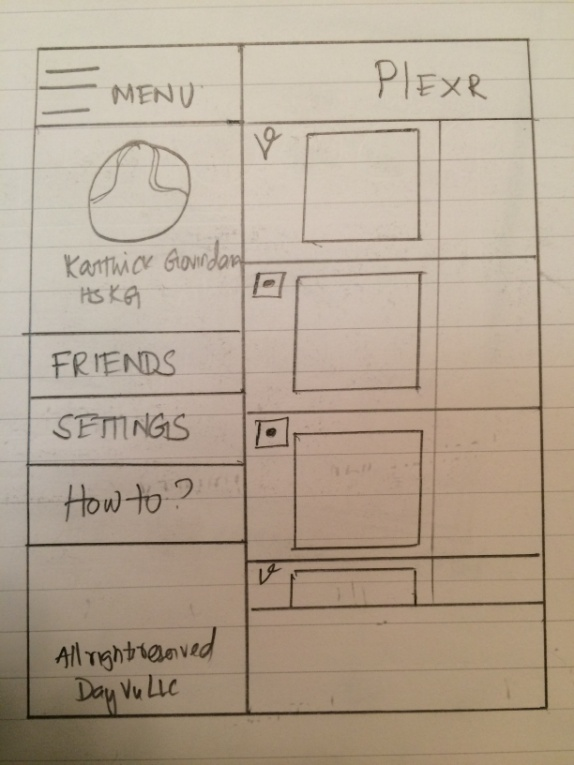 MENU
PlEXR
Karthick Govindan
HSKG
FRIENDS
SETTINGS
How to?
All right reserved
Day Vu LLC